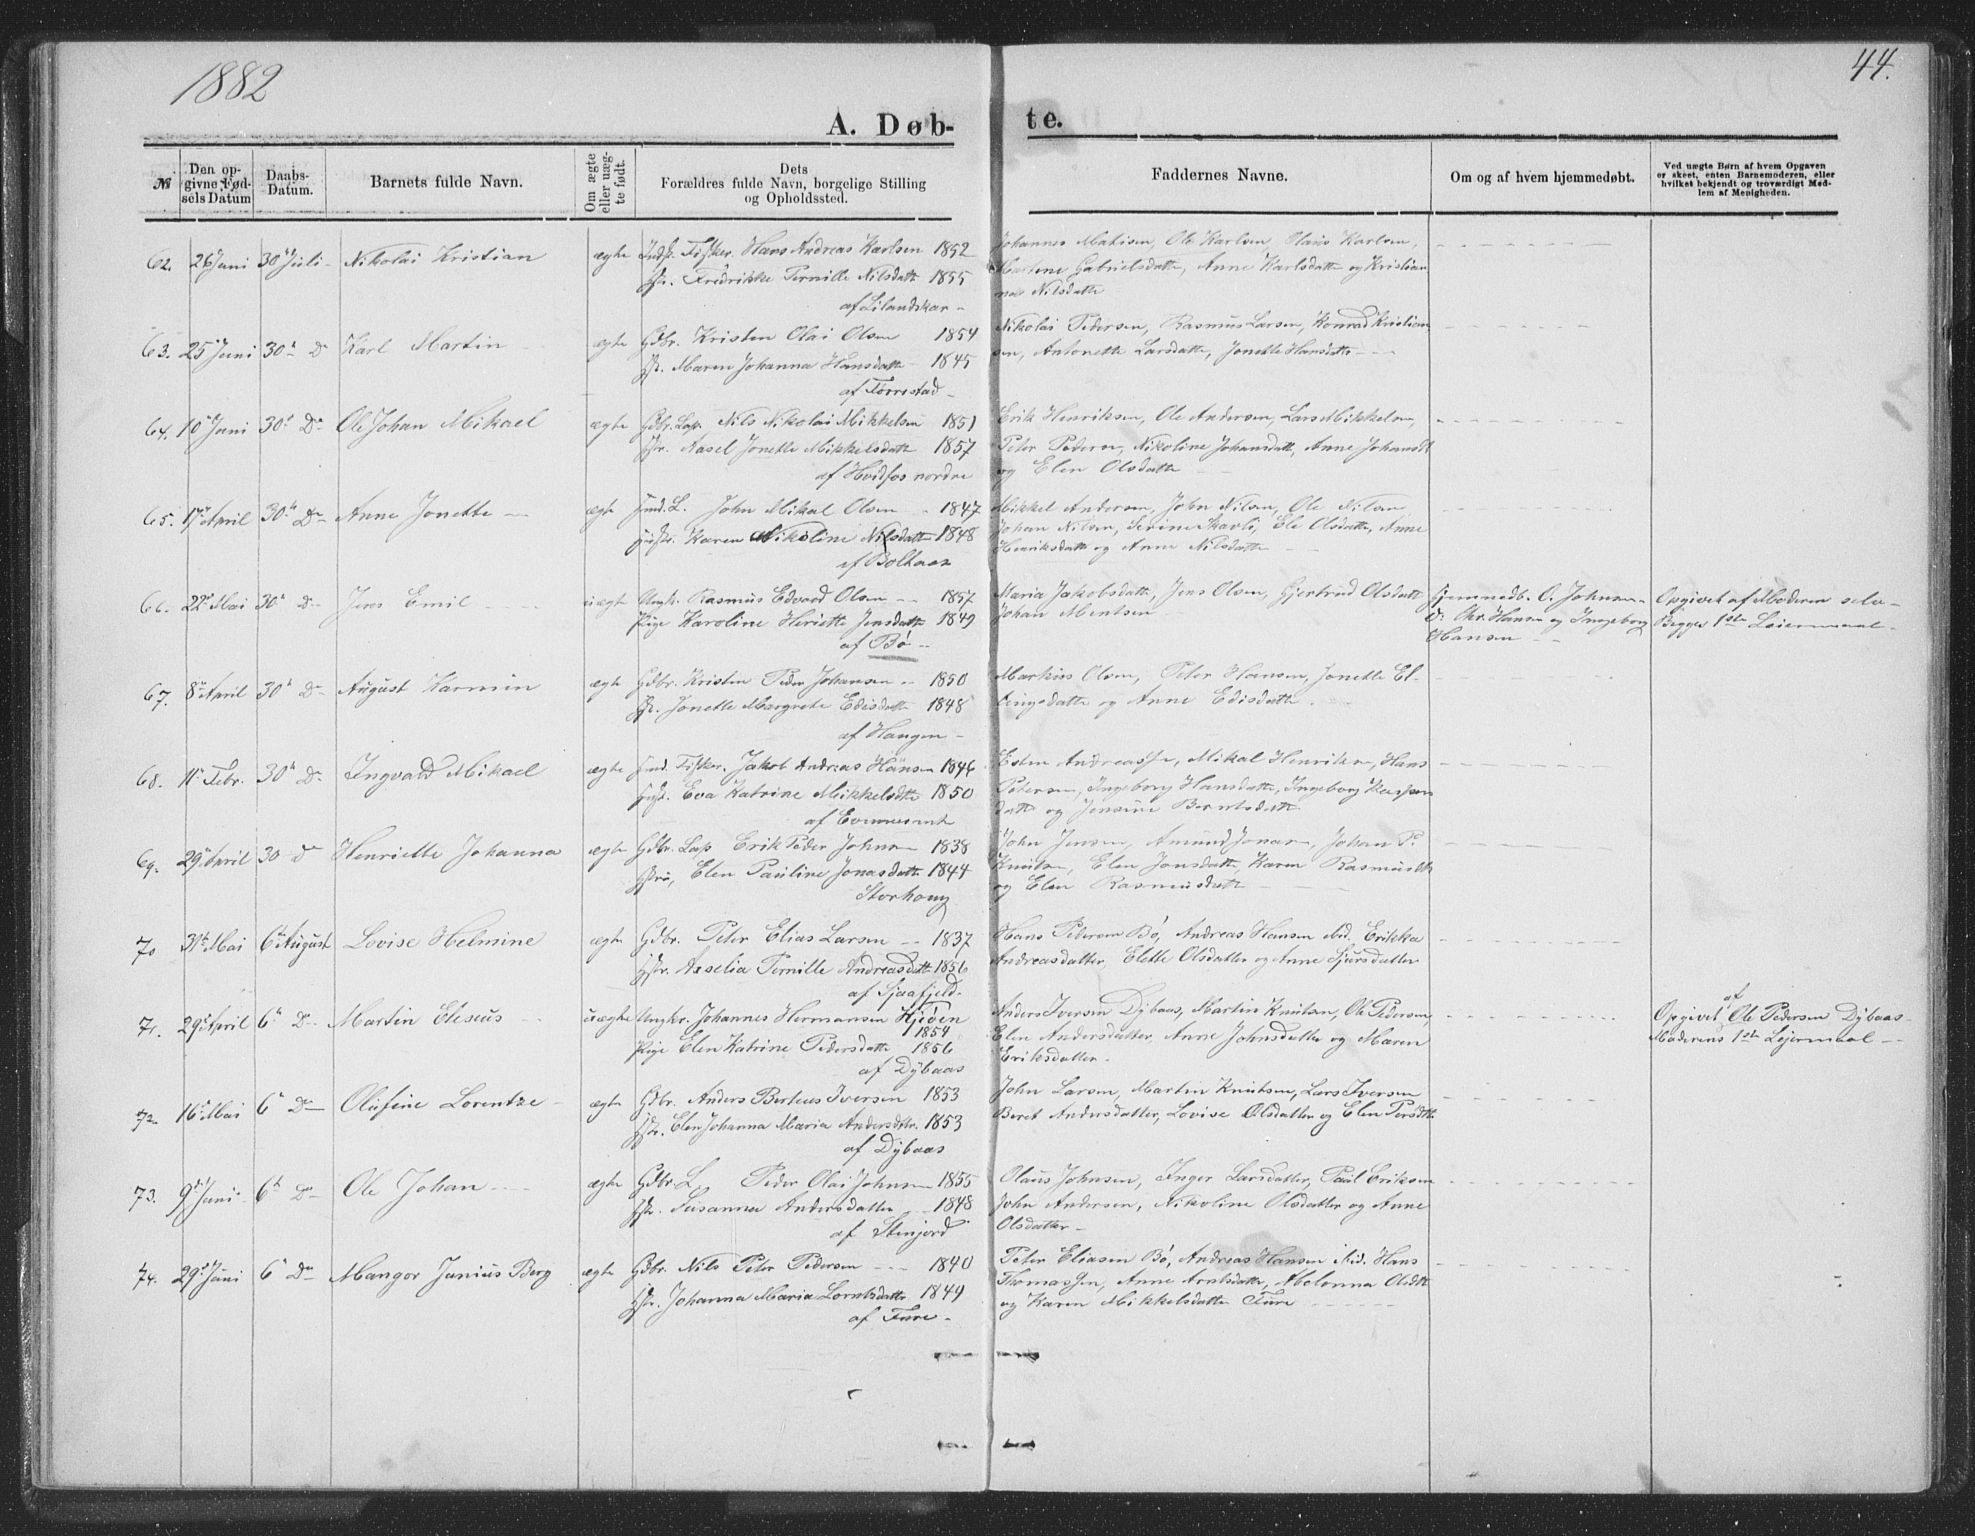 1882
44.
A. Døb-
te.
№
Den op-
givne Fød-
sels Datum
Daabs-
Datum.
Barnets fulde Navn.
Om ægte
eller uæg-
te født.
Dets
Forældres fulde Navn, borgelige Stilling
og Opholdssted.
Faddernes Navne.
Om og af hvem hjemmedøbt.
Ved uægte Børn af hvem Opgaven
er skeet, enten Barnemoderen, eller
hvilket bekjendt og troværdigt Med-
lem af Menigheden.
62. 26 Juni 30 Juli Nikolai Kristian ægte Fisker. Hans Andreas Karlsen 1852
Fredrikke Pernille Nilsdatt 1855
af Lilandskar
Johannes Matisen, Ole Karlsen, Olaus Karlsen,
Martene Gabrielsdatte, Anne Karlsdatte og Kristian
Nilsdatte
63. 25 Juni 30 Do Karl Martin ægte Gdbr. Kristen Olai Olsen 1854
Maren Johanna Hansdatte 1845
af Tørrestad
Nikolai Pedersen, Rasmus Larsen, Konrad Kristian
sen, Antonette Larsdatte, Jonette Hansdatte
64. 10 Juni 30 Do Ole Johan Mikael ægte Gdbr. Lap. Nils Nikolai Mikkelsen 1851
Aasel Jonette Mikkelsdatt 1857
af Hvidfos nordre
Erik Henriksen, Ole Andersen, Lars Mikkelsen,
Peter Pedersen, Nikoline Johansdatt, Anne Johansdt
og Elen Olsdatte
65. 17 April 30 Do Anne Jonette ægte Ind. L. John Mikal Olsen 1847
Karen Nikoline Nilsdatte 1848
af Boltaas
Mikkel Andersen, John Nilsen, Ole Nilsen
Johan Nilsen, Serine Skavli, Ele Olsdatte, Anne
Henriksdatte og Anne Nilsdatte
66. 22 Mai 30 D Jens Emil uægte Ungk. Rasmus Edvard Olsen 1857
Pige Karoline Henriette Jensdatte 1849
af Bø
Maria Jakobsdatt, Jens Olsen, Gjertrud Olsdatt
Johan Mentsen
Hjemmedb. O. Johnsen
Chr. Hansen og Ingeborg
Hansen
Opgivet af Moderen selv
Begges 1ste Leiermaal
67. 8 April 30 D August Karmin ægte Gdbr. Kristen Peder Johansen 1850
Jonette Margrete Edisdatte 1848
af Haugen
Markus Olsen, Peter Hansen, Jonette El-
lingsdatte og Anne Edisdatte
68. 11 Febr. 30 D Ingvald Mikael ægte Ind. Fisker. Jakob Andreas Hansen 1846
Eva Katrine Mikkelsdtt 1850
af Evenesmt
Esten Andreassen, Mikal Henriksen, Hans
Petersen, Ingeborg Hansdatte, Ingeborg Kaspers
datte og Jensine Berntsdatt
69. 29 April 30 D Henriette Johanna ægte Gdbr. Lap Erik Peder Johnsen 1838
Elen Pauline Jonasdatte 1844
Storhaug
John Jensen, Amund Jonasen, Johan P.
Knutsen, Elen Jonsdatte, Karen Rasmusdtt
og Elen Rasmusdatt
70 31te Mai 6te August Lovise Helmine ægte Gdbr. Peter Elias Larsen 1837
Axselia Pernille Andreasdatte 1856
af Sjaafjeld
Hans Pedersen Bø, Andreas Hansen Nid. Erikka
Andreasdatter, Elette Olsdatter og Anne Sjursdatter
71. 29 April 6te D Martin Eleseus uægte Ungkr. Johannes Hermansen Kjøen
1854
Pige Elen Katrine Pedersdatte 1856
af Dybaas
Anders Iversen Dybaas, Martin Knutsen, Ole Pedersen,
Elen Andersdatter, Anne Johnsdatte og Maren
Eriksdatter
Opgivet af Ole Pedersen Dybaas
Moderens 1ste Lejermaal
72. 16 Mai 6 D Olufine Lorentze ægte Gdbr. Anders Berteus Iversen 1853
Elen Johanna Maria Andersdtr. 1853
af Dybaas
John Larsen, Martin Knutsen, Lars Iversen
Beret Andersdatter, Lovise Olsdatter og Elen Persdtt
73. 9 Juni 6te D Ole Johan ægte Gdbr. L. Peder Olai Johnsen 1855
Susanna Andersdatter 1848
af Stenjord
Olaus Johnsen, Inger Larsdatter, Paul Eriksen
John Andersen, Nikoline Olsdatter og Anne
Olsdatter
74. 29 Juni 6 Do Mangor Junius Berg ægte Gdbr. Nils Peter Pedersen 1840
Johanna Maria Lorntsdatte 1849
af Fure
Peter Eliasen Bø, Andreas Hansen Nid. Hans
Thomassen, Anne Arntsdatte, Abelonna Olsdtt
og Karen Mikkelsdatte Fure